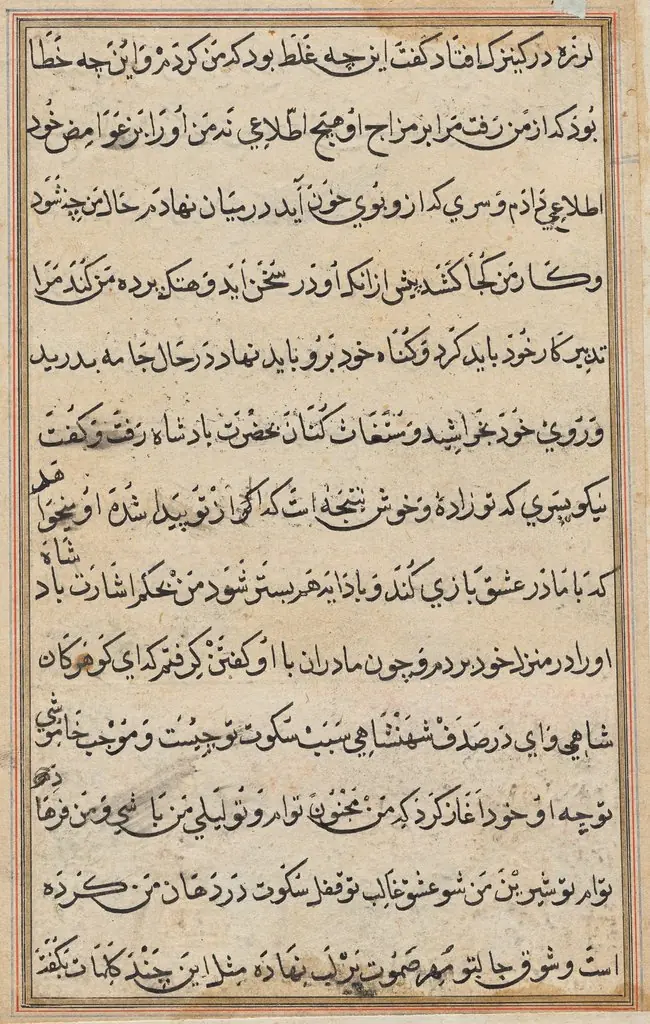 لرزه در کنیزک افتاد گفت این چه غلط بود که من کردم و این چه خطا
بود که از من رفت مرا بر مزاج او هیچ اطلاعی نه من او را بر غوامض خود
اطلاعی دادم و سری که ازو بوی خون آید در میان نهادم حال من چه شود
و کار من کجا کشد پیش از انکه او در سخن آید و هتک پرده من کند مرا
تدبیر کار خود باید کرد و گناه خود برو باید نهاد در حال جامه بدرید
و روی خود بخراشید و مستغاث کنان بحضرت بادشاه رفت و گفت
نیکو پسری که تو زادهٔ و خوش نتیجه است که اگر از تو پیدا شده او میخواهد
که با مادر عشق بازی کند و با دایه هم بستر شود من بحکم اشارت بادشاه
او را در منزل خود بردم و چون مادران با او گفتن گرفتم که ای گوهر کان
شاهی و ای در صدف شهنشاهی سبب سکوت تو چیست و موجب خاموشی
تو چه او خود آغاز کرد که من مجنون توام و تو لیلی من باشی و من فرهاد
توام تو شیرین من شو عشق غالب تو قفل سکوت در دهان من کرده
است و شوق جالب تو مهر صموت بر لب نهاده مثل این چند کلمات بگفت